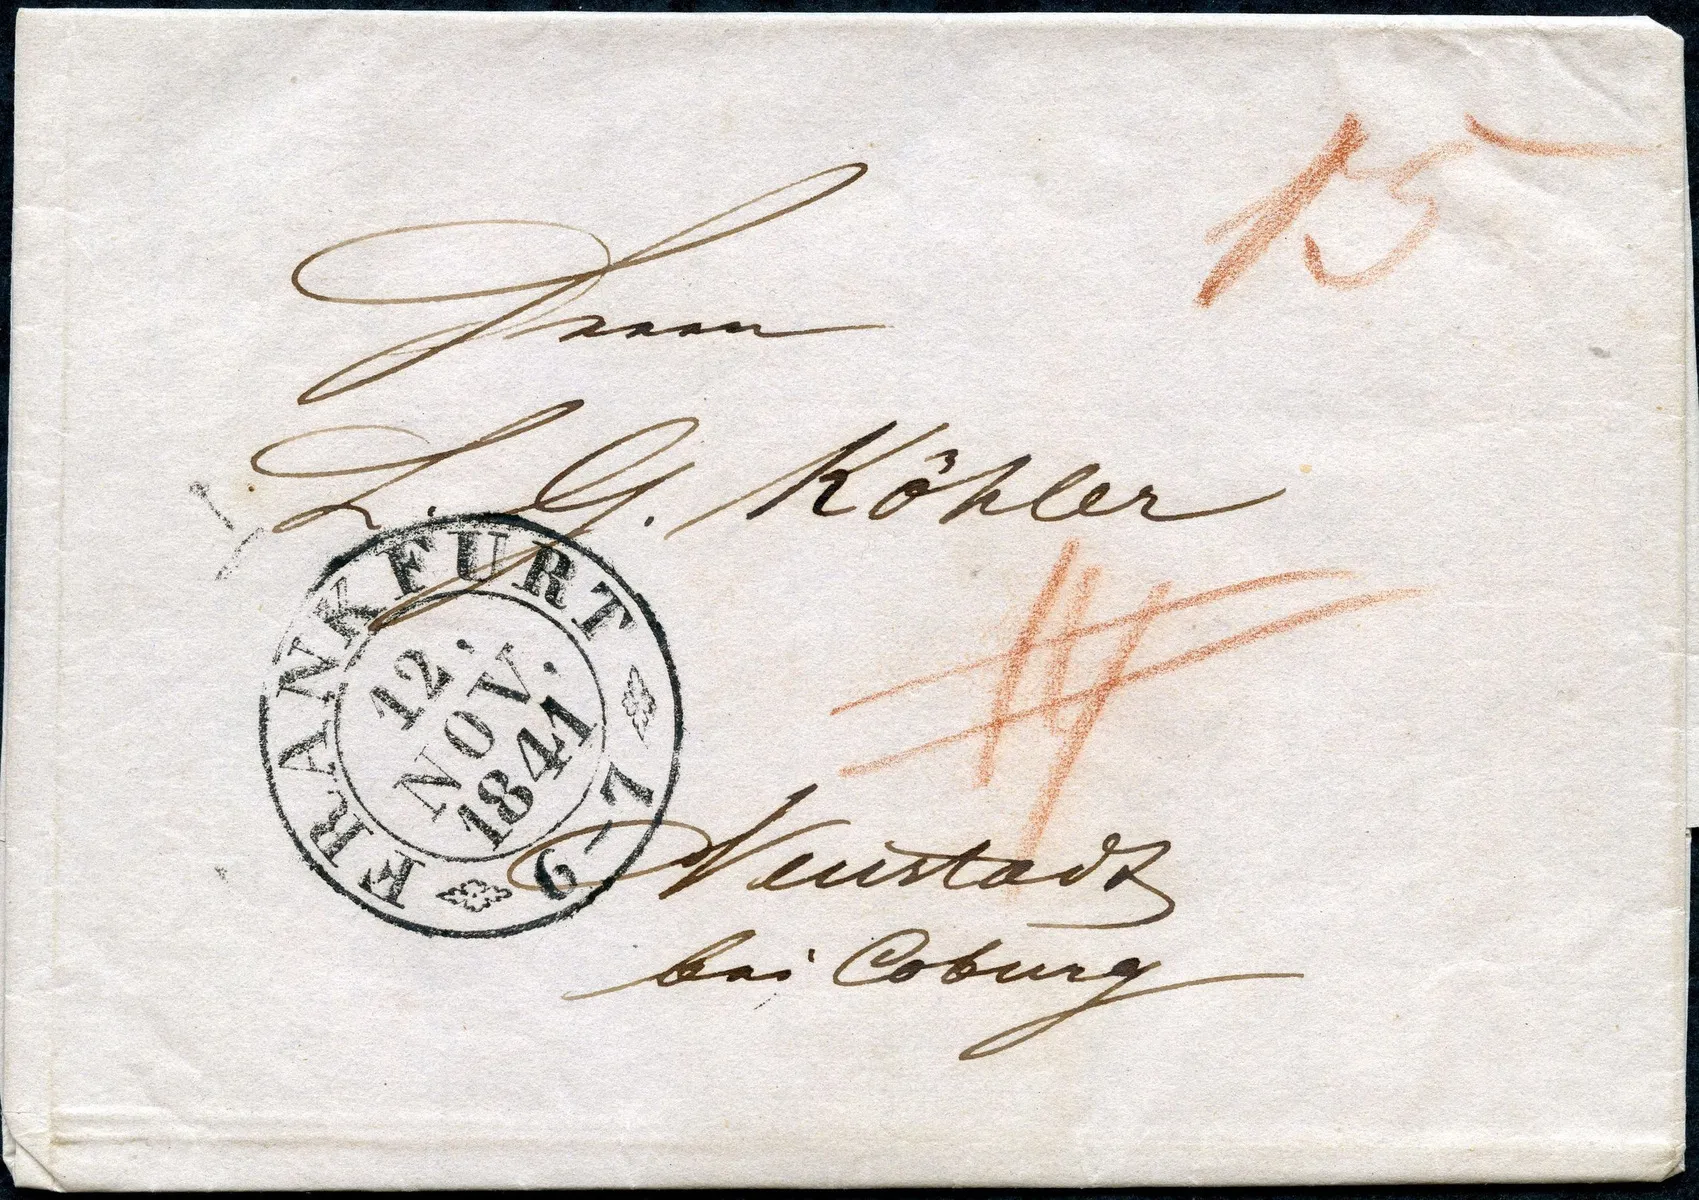 15
Herrn
L. G. Köhler
FRANKFURT
12.
NOV.
1841
6-7
Neustadt
bei Coburg